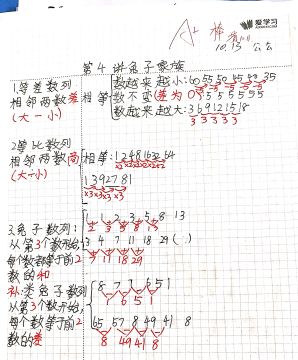 A+ 棒
爱学习
10.15
第4讲兔子家族
1.等差数列
相邻两数差相等
(大-小)
数越来越小:60 55 50 45 40 35
数不变(差为0) 5 5 5 5 5 5
数越来越大:3 6 9 12 15 18
3 3 3 3 3
2等比数列
相邻两数商相等:1 2 4 8 16 32 64
(大÷小)
×2×2×2×2×2×2
1 3 9 27 81
×3×3×3×3
3.兔子数列:
1 1 2 3 5 8 13
2 3 5 8 13
从第3个数开始,
3 4 7 11 18 29 ( )
每个数都等于前2
7 11 18 29
数的和
补:类兔子数列
8 7 1 6 5 1
从第3个数开始,
1 6 5 1
每个数等于前2
65 57 8 49 41 8
数的差
8 49 41 8